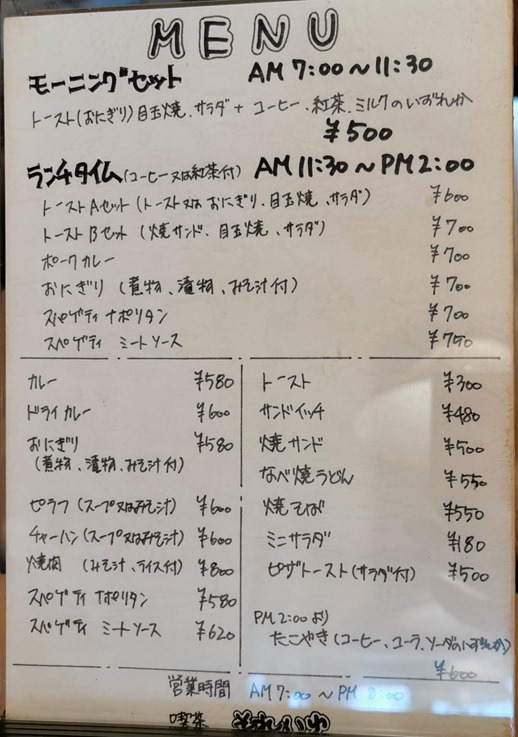 MENU
モーニングセット AM 7:00～11:30
トースト(おにぎり)目玉焼、サラダ + コーヒー、紅茶、ミルクのいずれか
¥500
ランチタイム(コーヒー又は紅茶付) AM 11:30～PM 2:00
トーストAセット (トースト又は おにぎり、目玉焼、サラダ) ¥600
トーストBセット (焼サンド、目玉焼、サラダ) ¥700
ポークカレー ¥700
おにぎり (煮物、漬物、みそ汁付) ¥700
スパゲティ ナポリタン ¥700
スパゲティ ミートソース ¥750
カレー ¥580
ドライカレー ¥600
おにぎり ¥580
(煮物、漬物、みそ汁付)
ピラフ (スープ又はみそ汁) ¥600
チャーハン (スープ又はみそ汁) ¥600
焼肉 (みそ汁、ライス付) ¥800
スパゲティ ナポリタン ¥580
スパゲティ ミートソース ¥620
トースト ¥300
サンドイッチ ¥480
焼サンド ¥500
なべ焼うどん ¥550
焼そば ¥550
ミニサラダ ¥180
ピザトースト(サラダ付) ¥500
PM 2:00より
たこやき (コーヒー、コーラ、ソーダのいずれか)
¥600
営業時間 AM 7:00 ～ PM 8:00
喫茶